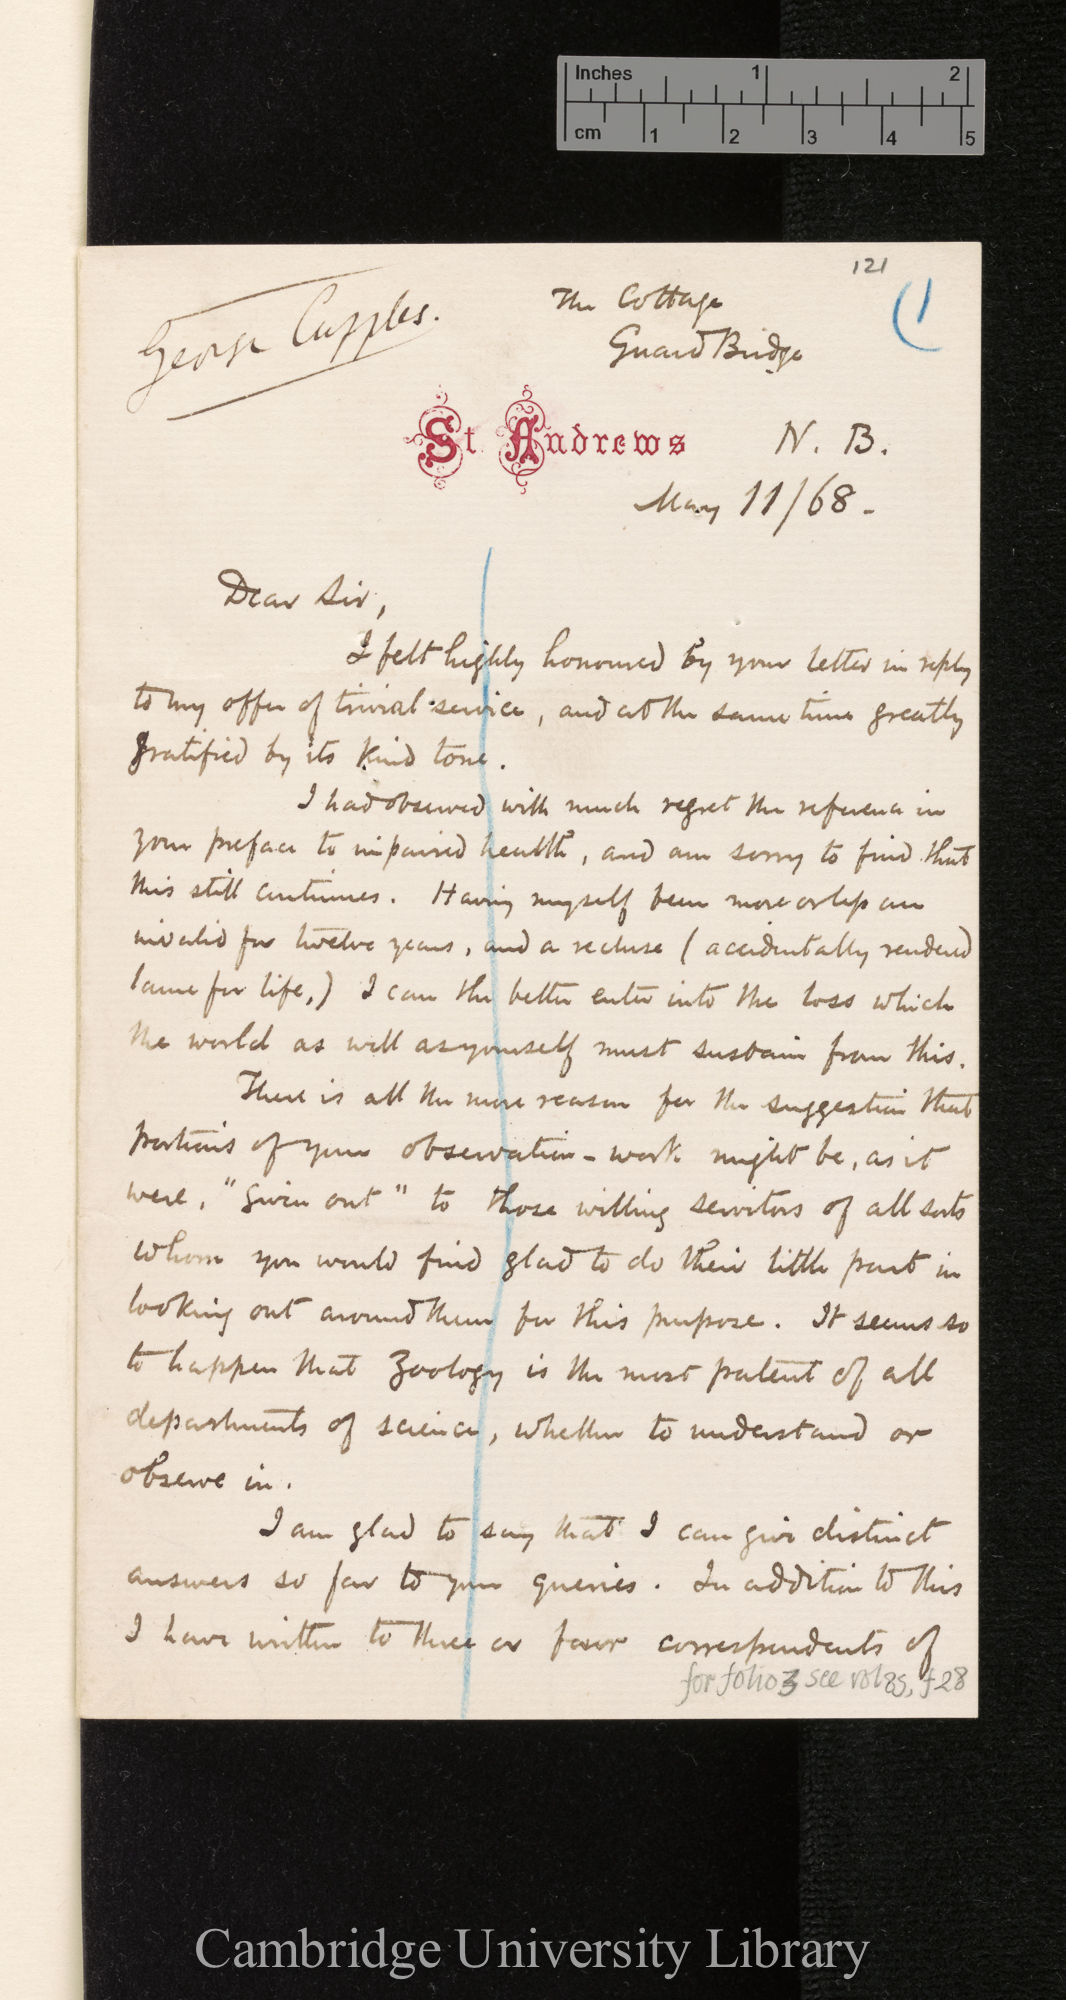 Inches 1 2
cm 1 2 3 4 5
121
George Cupples.
The Cottage
Guard Bridge
(1
St. Andrews N. B.
May 11/68 -
Dear Sir,
I felt highly honoured by your letter in reply
to my offer of trivial service, and at the same time greatly
gratified by its kind tone.
I had observed with much regret the reference in
your preface to impaired health, and am sorry to find that
this still continues. Having myself been more or less an
invalid for twelve years, and a recluse (accidentally rendered
lame for life,) I can the better enter into the loss which
the world as well as yourself must sustain from this.
There is all the more reason for the suggestion that
portions of your observation-work might be, as it
were, "given out" to those willing servitors of all sorts
whom you would find glad to do their little part in
looking out around them for this purpose. It seems so
to happen that Zoology is the most patent of all
departments of science, whether to understand or
observe in.
I am glad to say that I can give distinct
answers so far to your queries. In addition to this
I have written to three or four correspondents of
for folio 3 see vol 85, f 28
Cambridge University Library